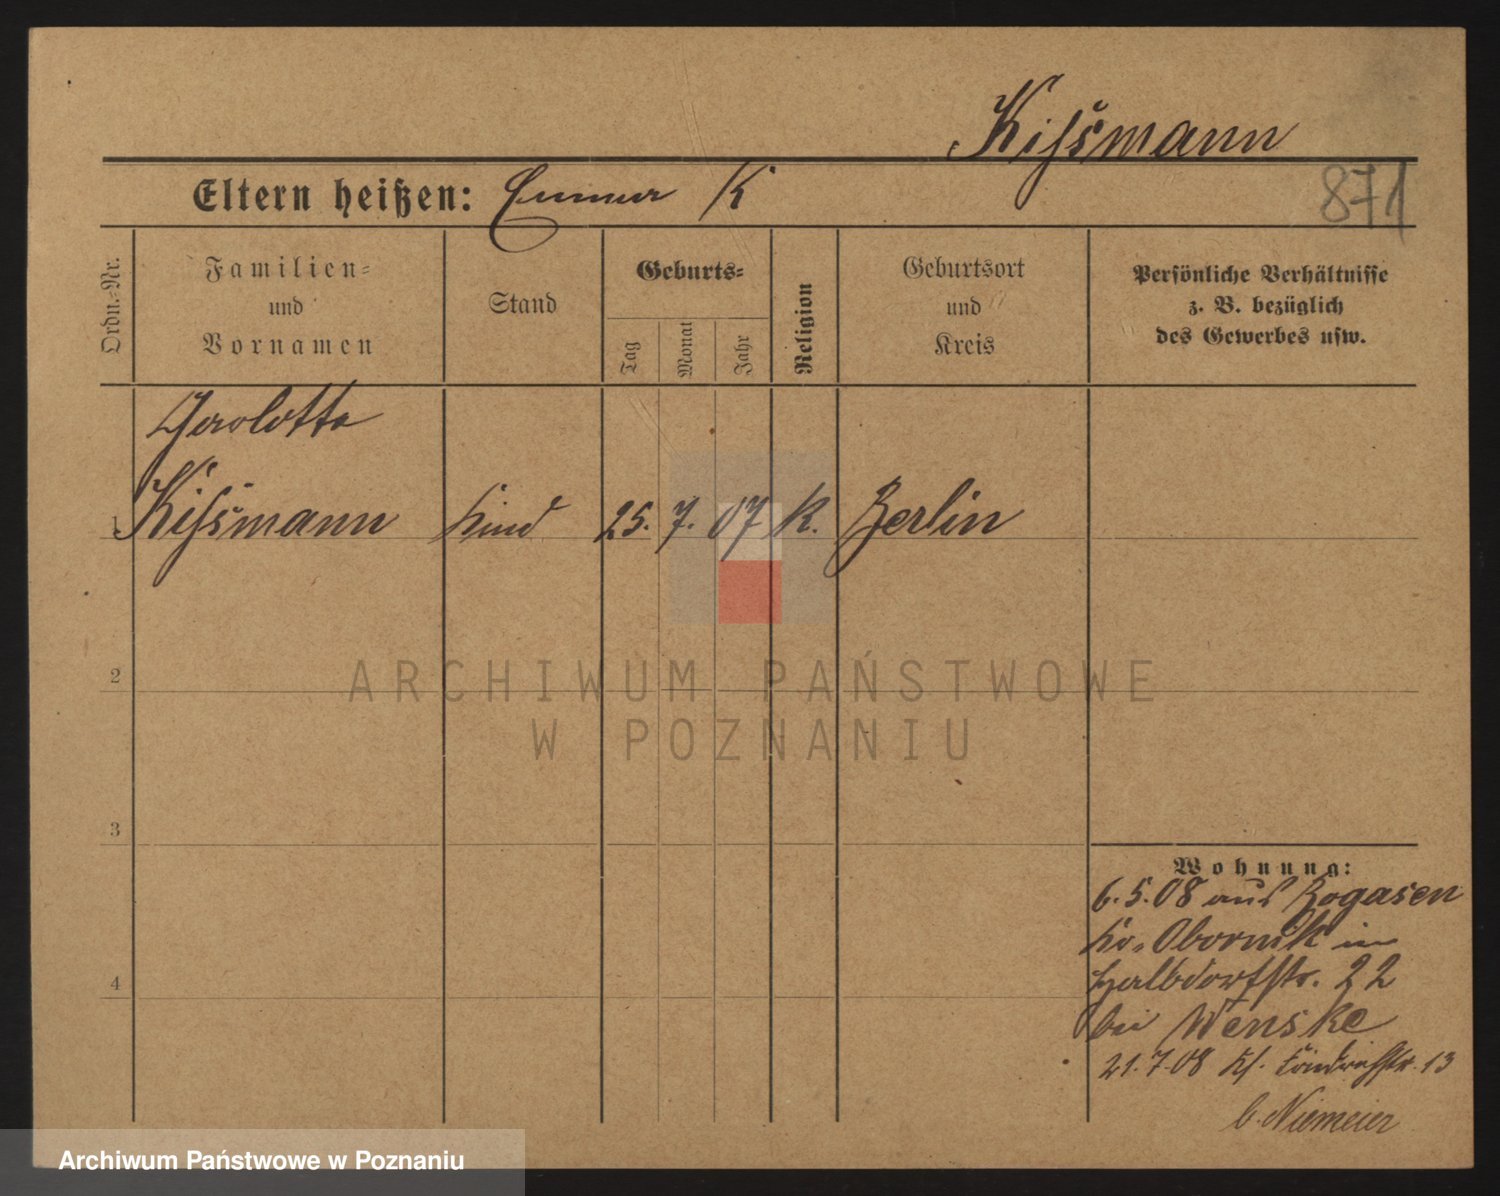 Kissmann
Eltern heißen: Emma K
871
Ordn.-Nr.
Familien-
und
Vornamen
Stand
Geburts-
Tag
Monat
Jahr
Religion
Geburtsort
und
Kreis
Persönliche Verhältnisse
z. B. bezüglich
des Gewerbes usw.
Charlotte
1 Kissmann Kind 25. 7. 07 K. Berlin
2
3
4
Wohnung:
6.5.08 aus Rogasen
Kr. Obornik in
Halbdorfstr. 22
bei Wenske
21.7.08 Kl. 13
b. Niemeier
ARCHIWUM PAŃSTWOWE
W POZNANIU
Archiwum Państwowe w Poznaniu